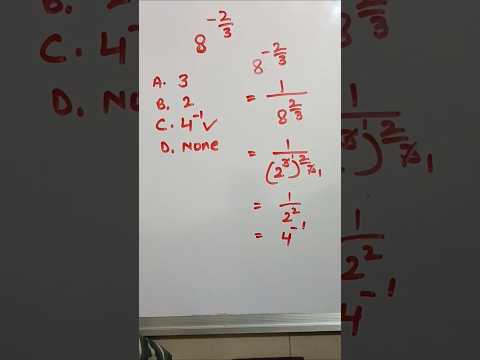 8^{-2/3}
A. 3
B. 2
C. 4^{-1} ✓
D. None
8^{-2/3}
= 1/8^{2/3}
= 1/(2^{3})^{2/3} 1
= 1/2^{2}
= 4^{-1}